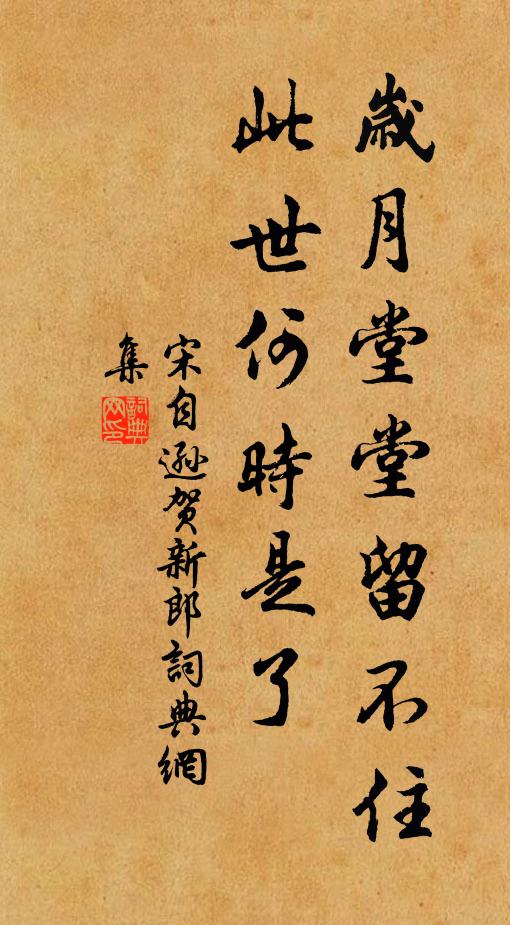 歲月堂堂留不住
此世何時是了
宋自遜賀新郎詞典網
集
詞典
网印